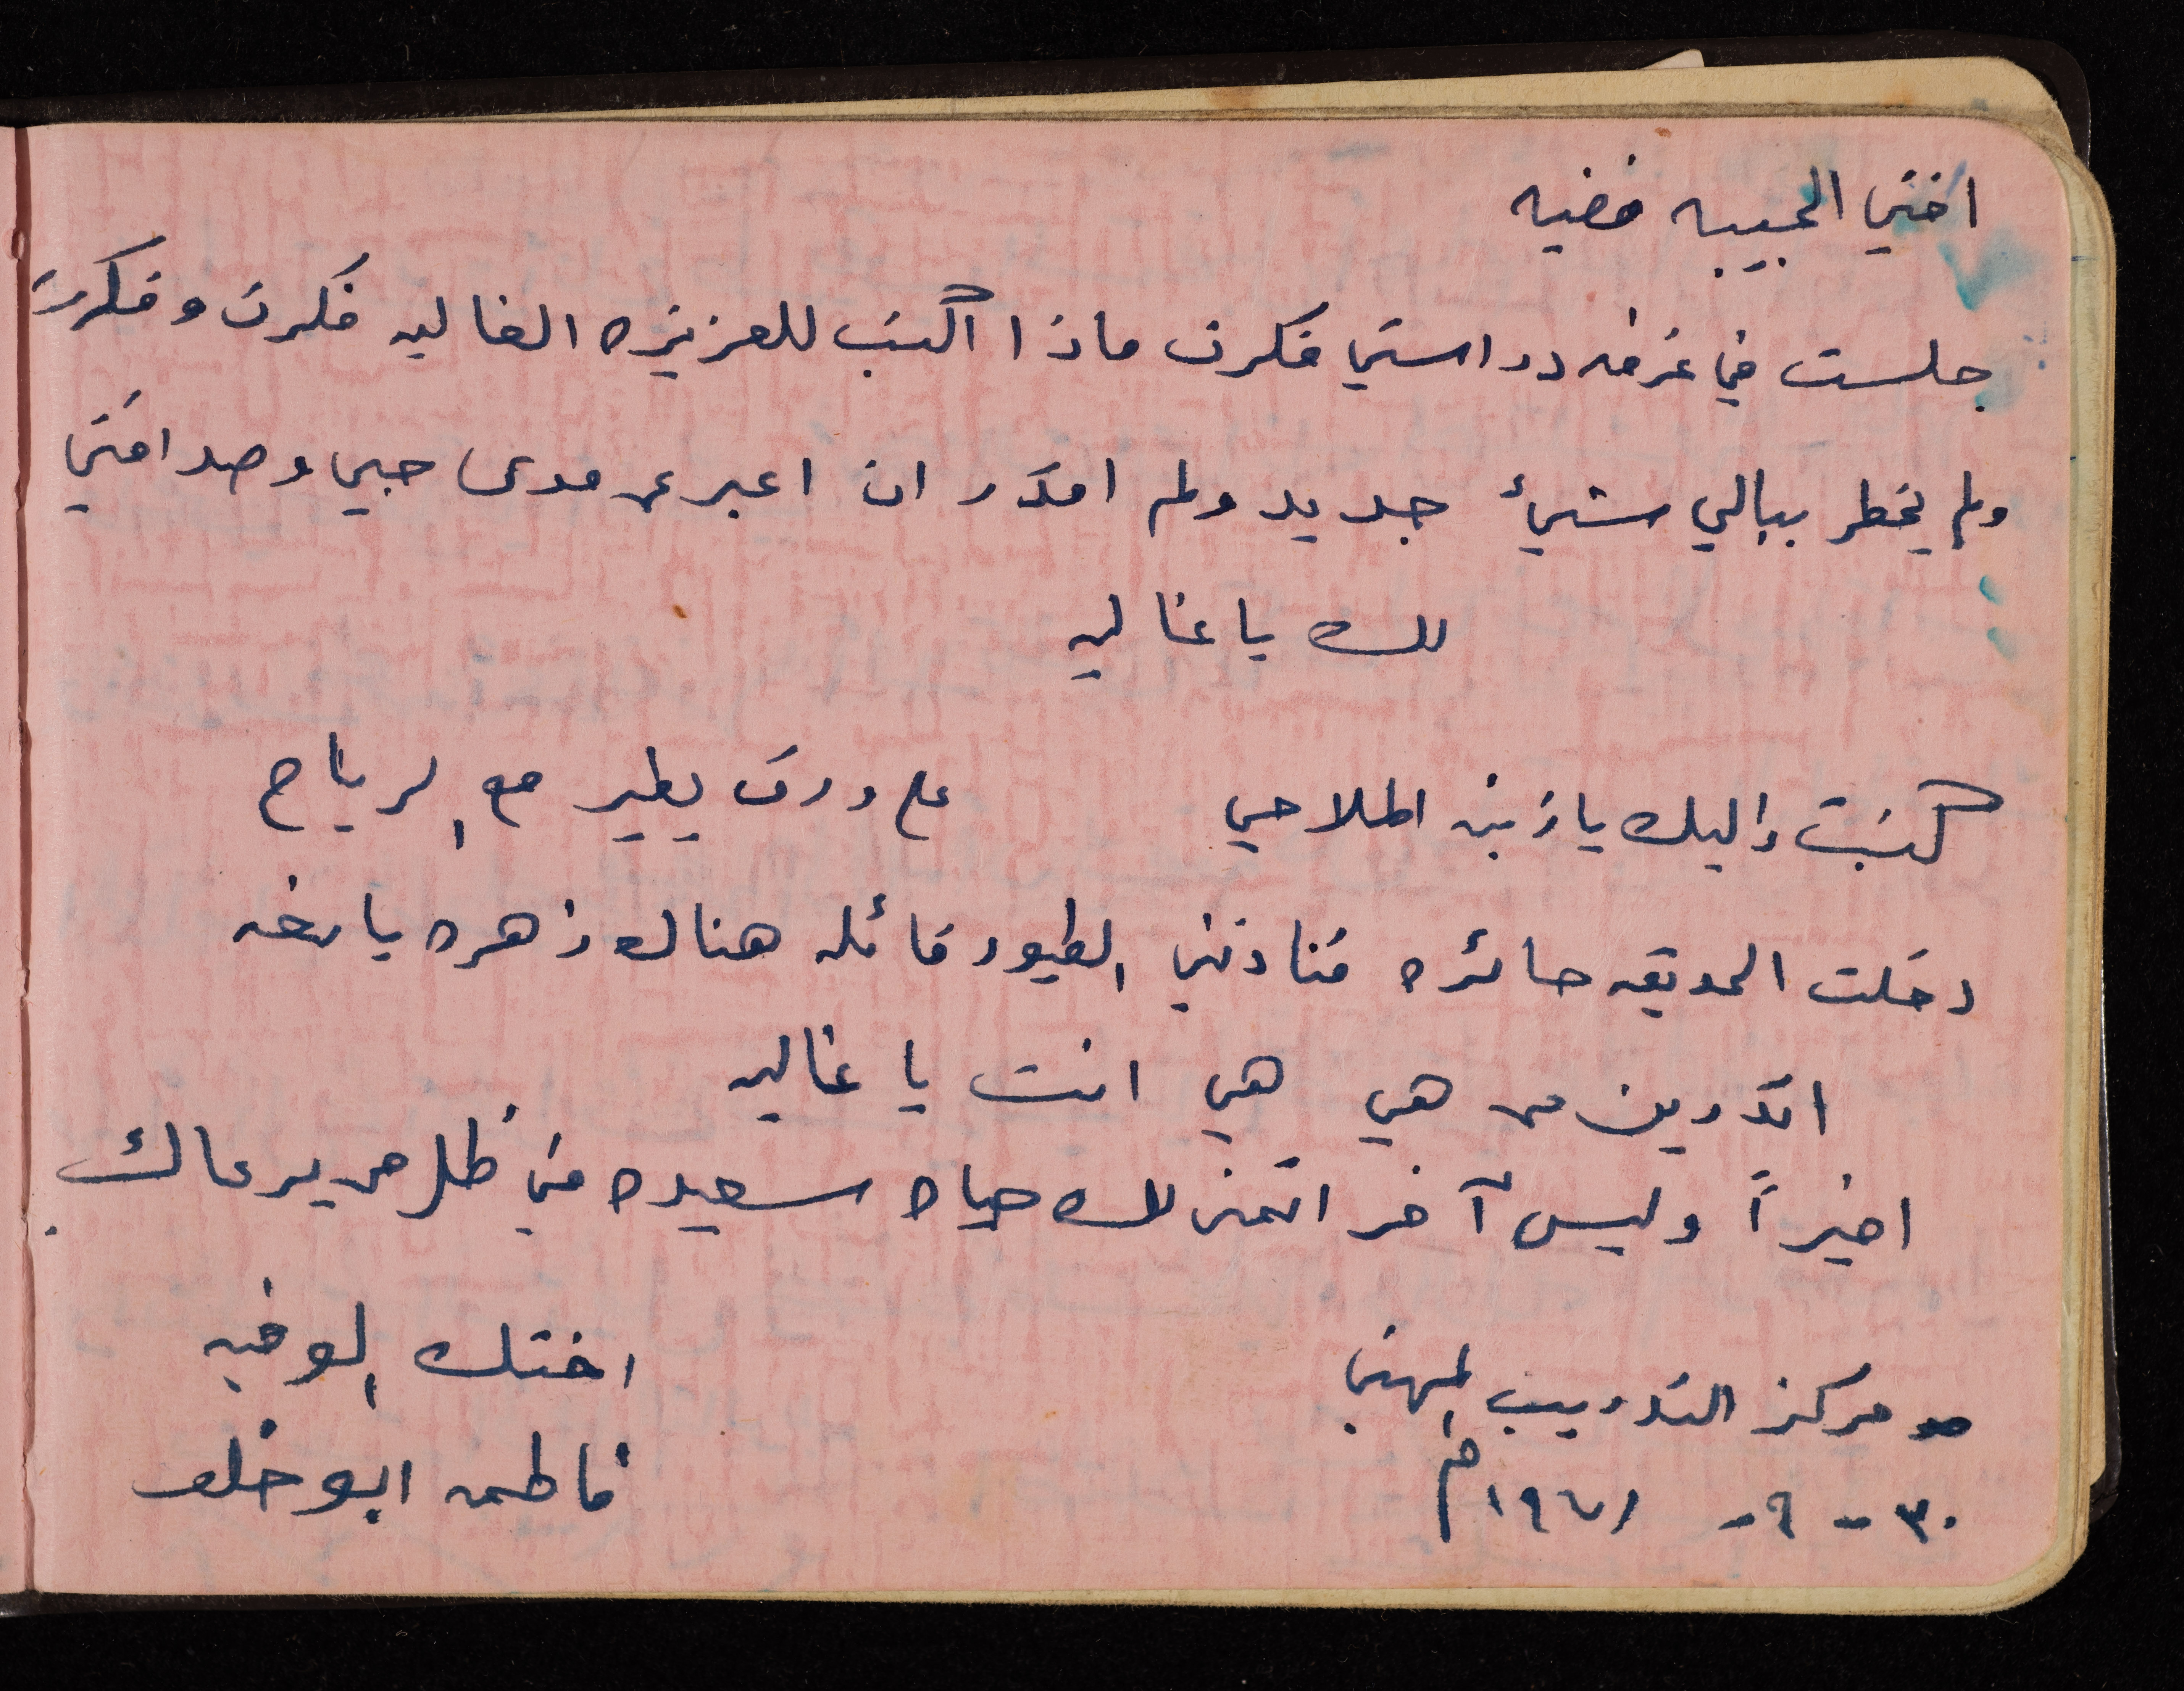 اختي الحبيبه فضيه
جلست في غرفه دراستي فكرت ماذا اكتب للعزيزه الغاليه فكرت وفكرت
ولم يخطر ببالي شيئ جديد ولم اقدر ان اعبر عن مدى حبي وصداقتي
لك يا غاليه
كتبت إليك يا زينه الملاحي على ورق يطير مع الرياح
دخلت الحديقه حائره فنادتني الطيور قائله هناك زهره يانعه
اتدرين من هي هي انت يا غاليه
اخيراً وليس آخر اتمنى لك حياه سعيده في ظل من يرعاك
اختك الوفيه
فاطمه ابو خلف
مركز التدريب المهني
٣٠ - ٩ - ١٩٧١م